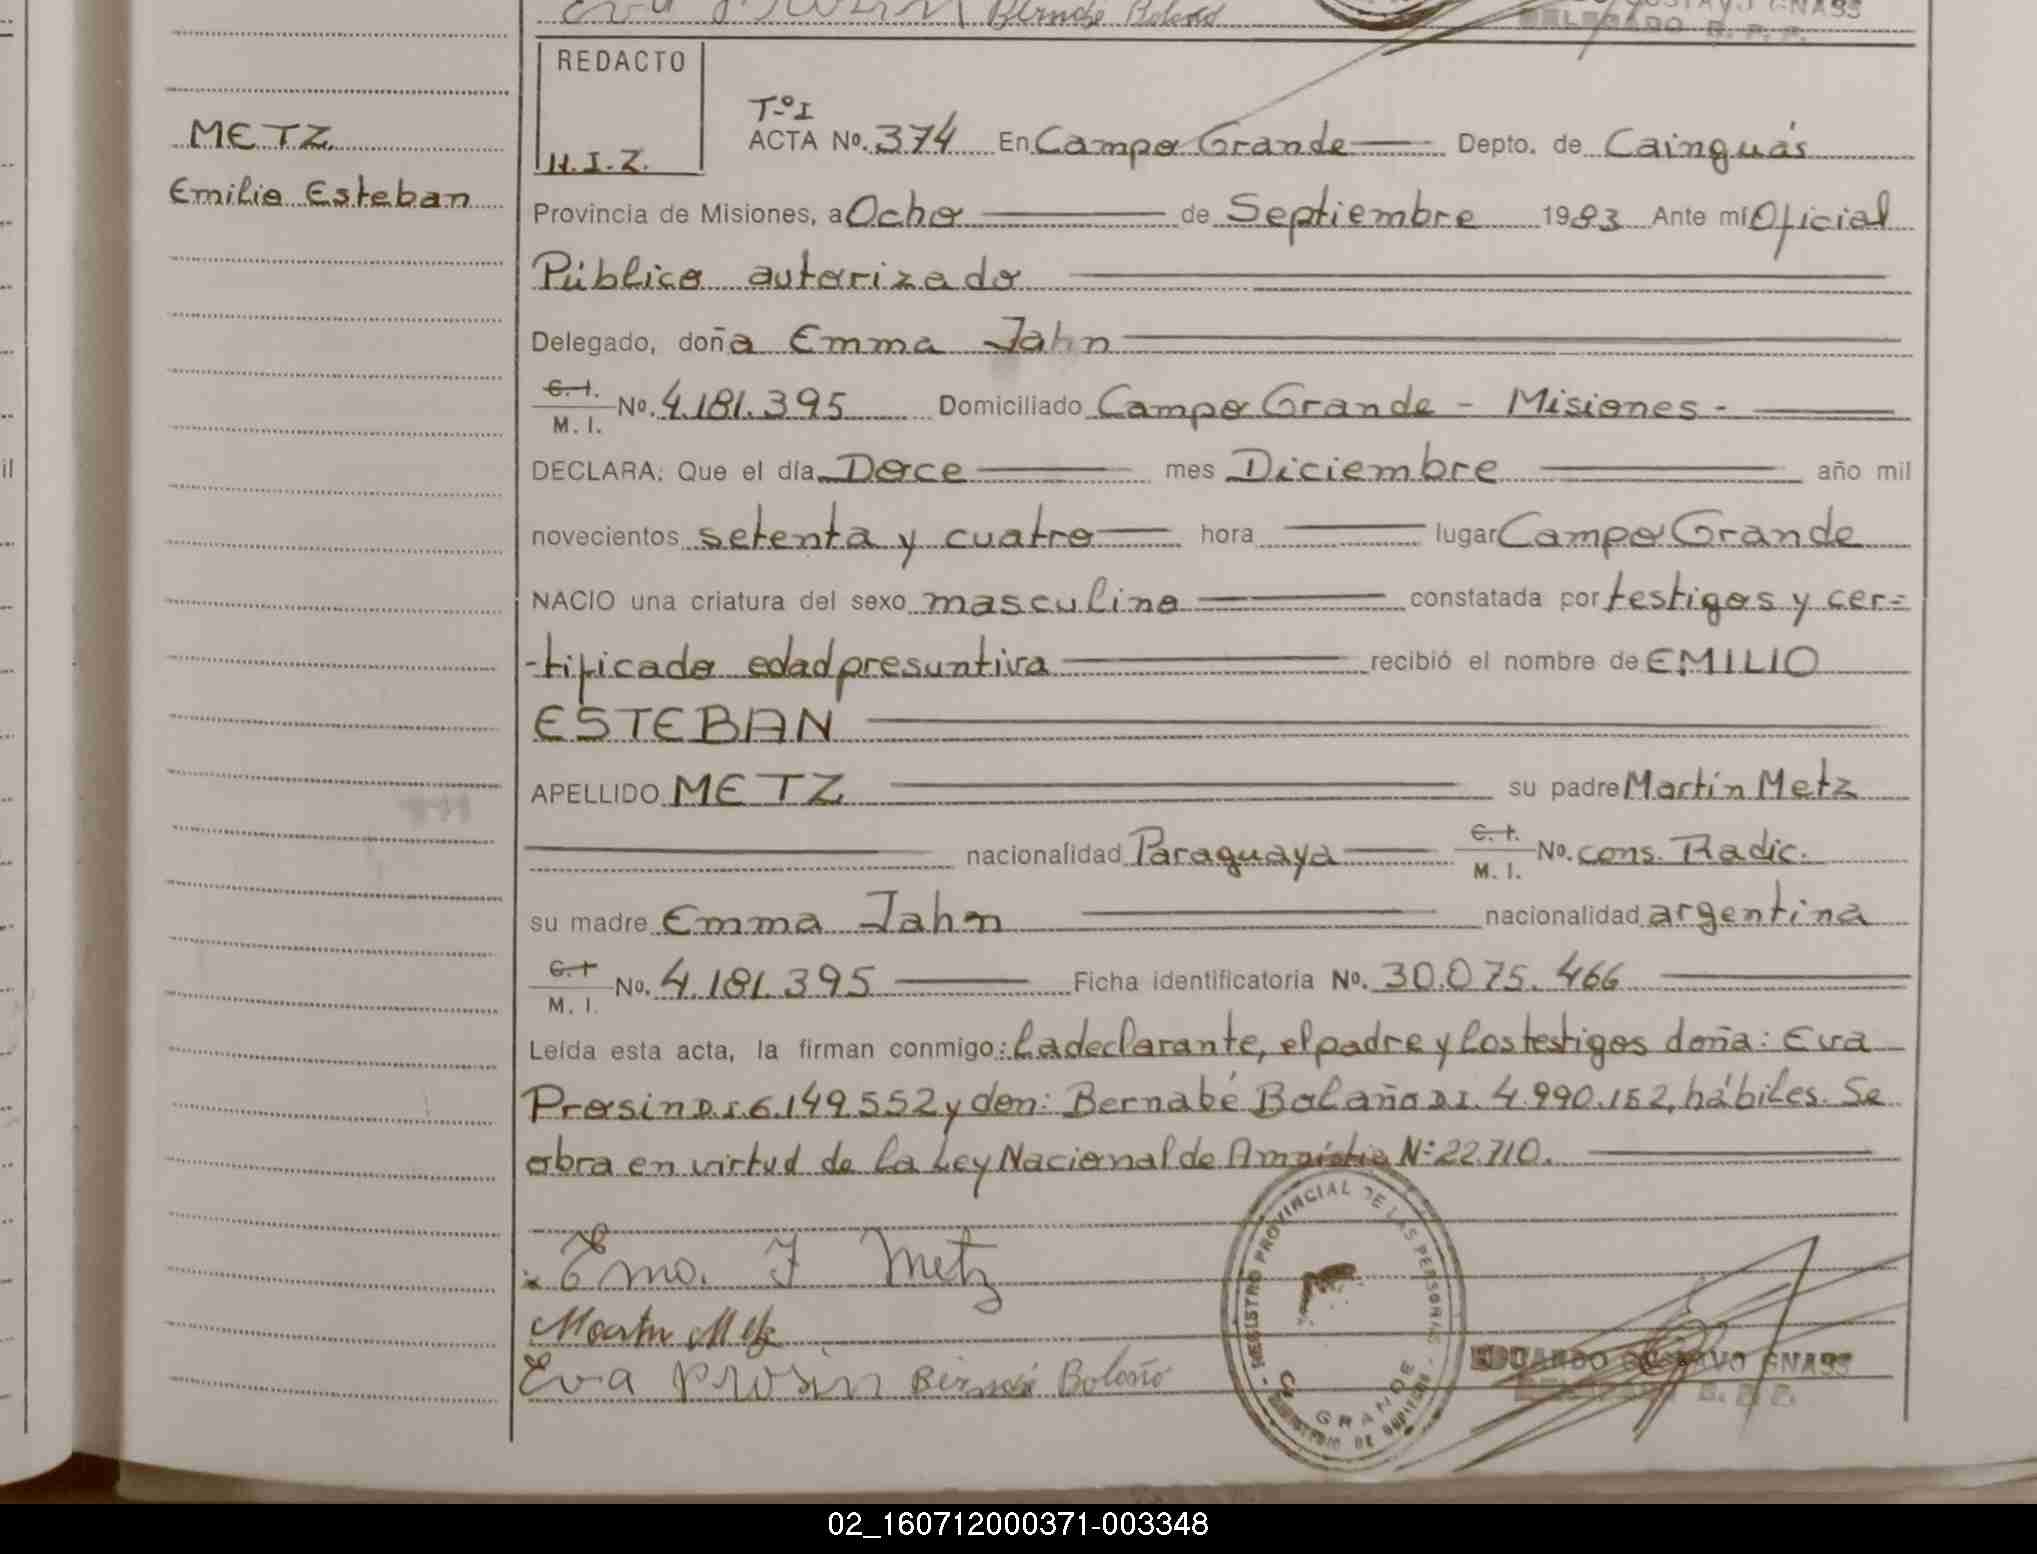 Eva Prosin Bernabé Bolaño
GUSTAVO GNASS
DELEGADO R. P. P.
METZ
Emilio Esteban
REDACTO
H.I.Z.
Tº I
ACTA Nº. 374 En Campo Grande Depto. de Cainguás
Provincia de Misiones, a Ocho de Septiembre 1983 Ante mí Oficial
Público autorizado
Delegado, doña Emma Jahn
C. I.
M. I. Nº. 4.181.395 Domiciliado Campo Grande - Misiones -
DECLARA: Que el día Doce mes Diciembre año mil
novecientos setenta y cuatro hora lugar Campo Grande
NACIO una criatura del sexo masculino constatada por testigos y cer=
-tificado edad presuntiva recibió el nombre de EMILIO
ESTEBAN
APELLIDO METZ su padre Martín Metz
nacionalidad Paraguaya C. I. M. I. Nº. cons. Radic.
su madre Emma Jahn nacionalidad argentina
C. I.
M. I. Nº. 4.181.395 Ficha identificatoria Nº. 30.075.466
Leída esta acta, la firman conmigo: la declarante, el padre y los testigos doña: Eva
Prosin D.I. 6.149.552 y don: Bernabé Bolaño D.I. 4.990.152, hábiles. Se
obra en virtud de la Ley Nacional de Amnistia Nº 22.710.
Ema. J Metz
Martin Metz
Eva Prosin Bernabé Bolaño
REGISTRO PROVINCIAL DE LAS PERSONAS
GRANDE
EDUARDO GUSTAVO GNASS
02_160712000371-003348